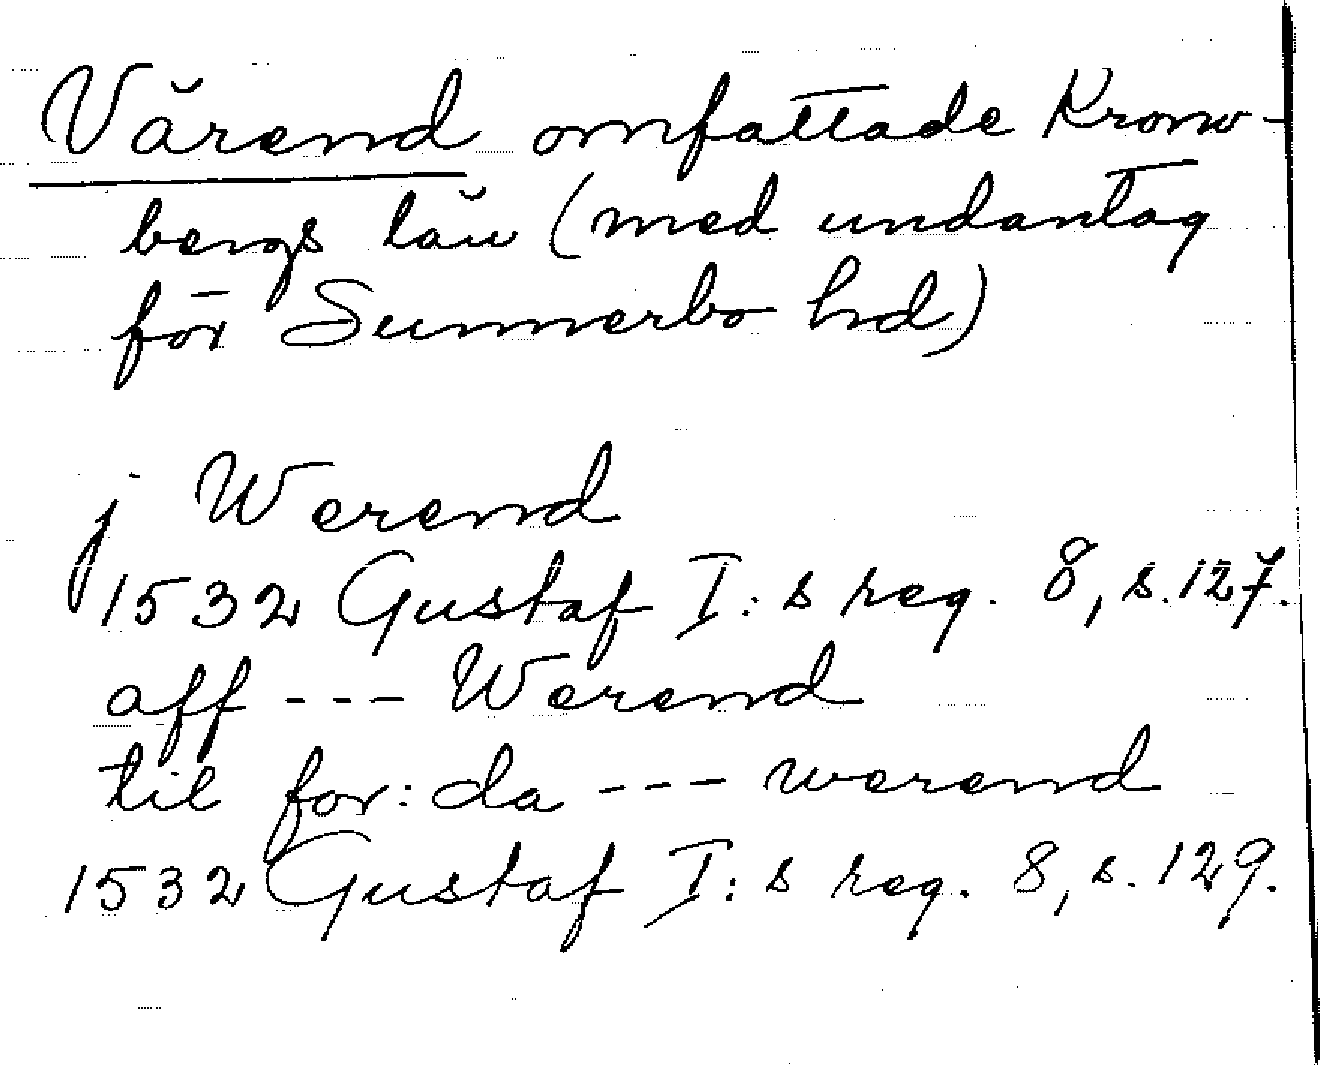 Värend omfattade Krono-
bergs län (med undantag
för Sunnerbo hd)
j Werend
1532 Gustaf I:s reg. 8, s. 127.
aff --- Werend
til for:da --- werend
1532 Gustaf I:s reg. 8, s. 129.